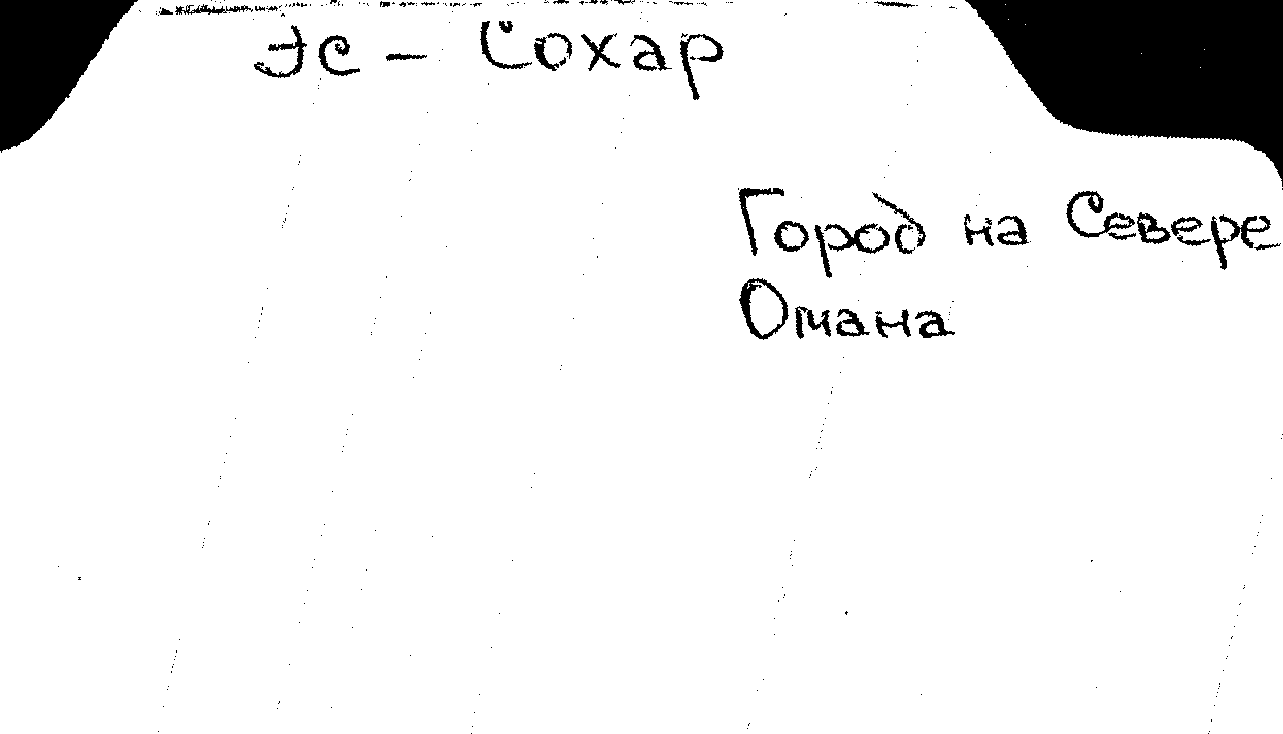 Эс - Сохар
Город на Севере
Омана